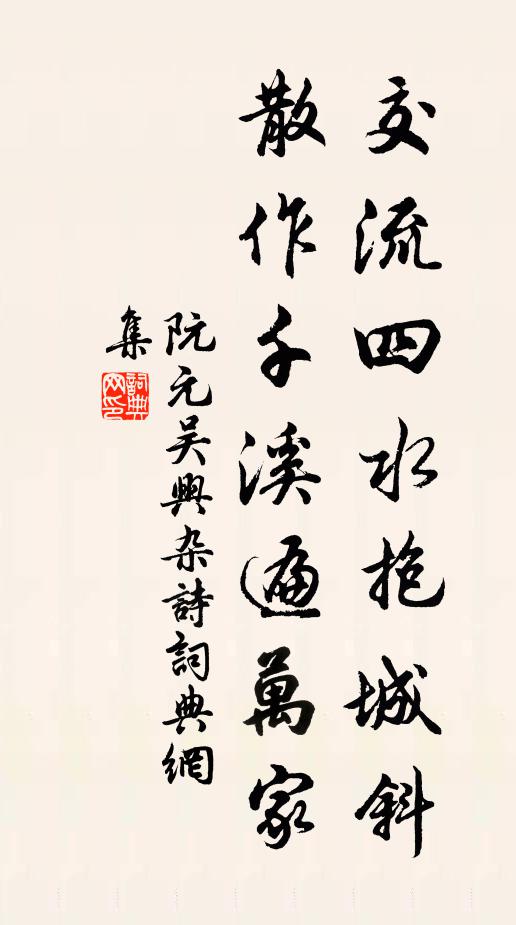 交流四水抱城斜
散作千溪遍萬家
阮元吴興杂詩詞典網
集
詞典网印